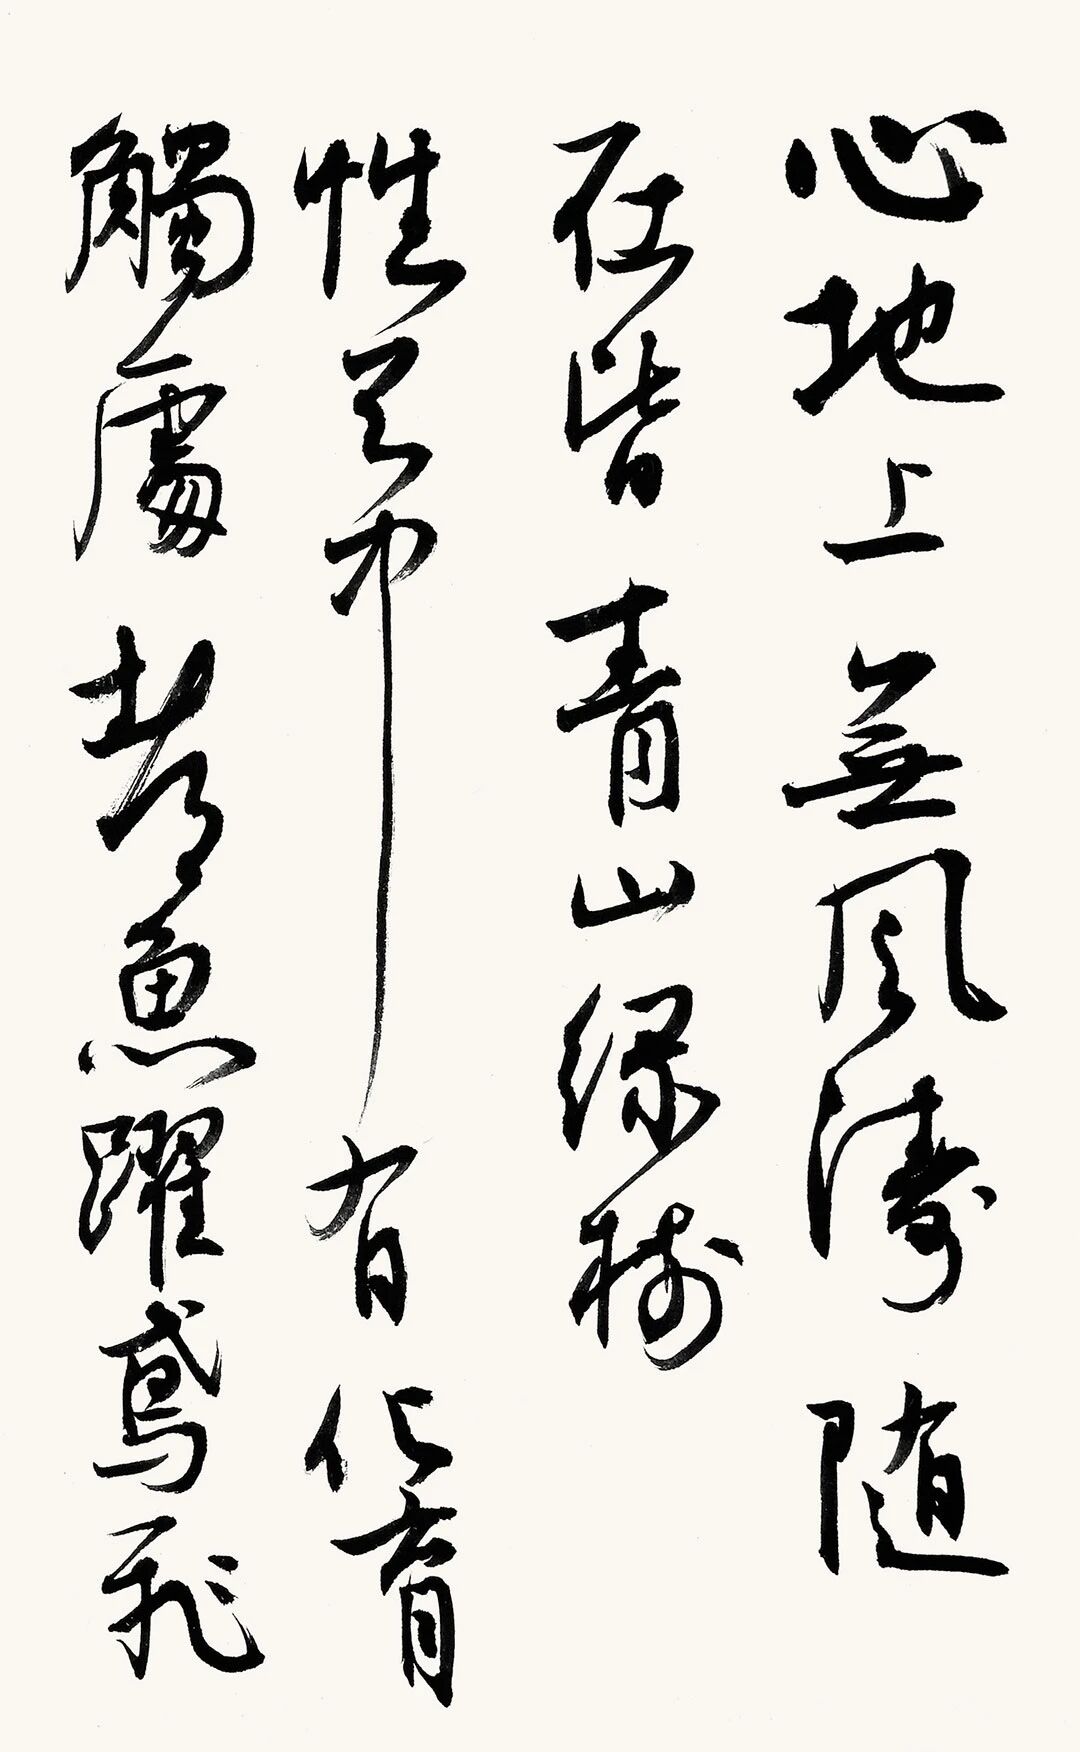 心地上無風濤随
在皆青山绿樹
性天中有化育
觸處都魚躍鳶飛